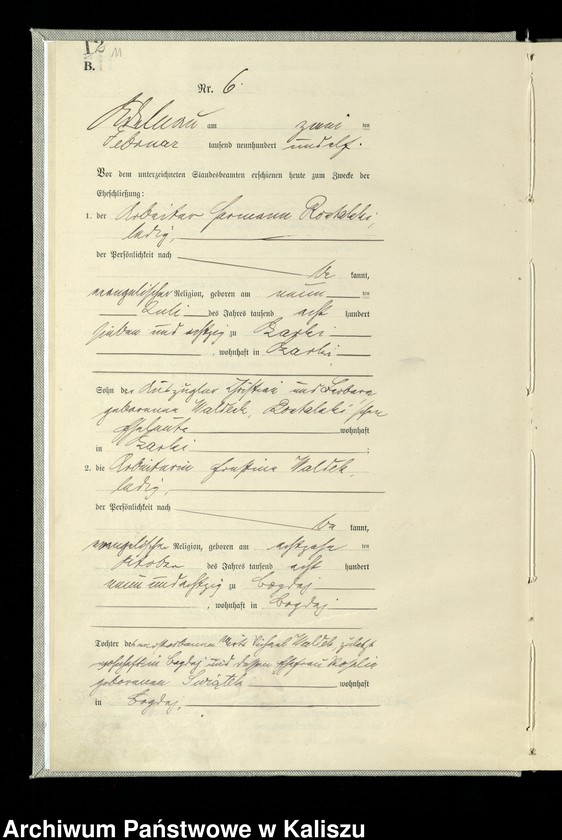 12
11
B.
Nr. 6.
Adelnau am zwei ten
Februar tausend neunhundert und elf.
Vor dem unterzeichneten Standesbeamten erschienen heute zum Zwecke der
Eheschließung:
1. der Arbeiter Hermann Rostalski,
ledig,
der Persönlichkeit nach
be kannt,
evangelischer Religion, geboren am neun ten
Juli des Jahres tausend acht hundert
sieben und achtzig zu
, wohnhaft in
Sohn der Christian und Barbara
geborenen Waldek, Rostalski'schen
Eheleute wohnhaft
in
2. die Arbeiterin Ernstine Waldek,
ledig,
der Persönlichkeit nach
be kannt,
evangelischer Religion, geboren am achtzehn ten
Oktober des Jahres tausend acht hundert
neun und achtzig zu Bogdaj
, wohnhaft in Bogdaj
Tochter des verstorbenen Wirts Michael Waldek, zuletzt
wohnhaft in Bogdaj und dessen Ehefrau Rosalie
geborenen Swiątek wohnhaft
in Bogdaj.
Archiwum Państwowe w Kaliszu